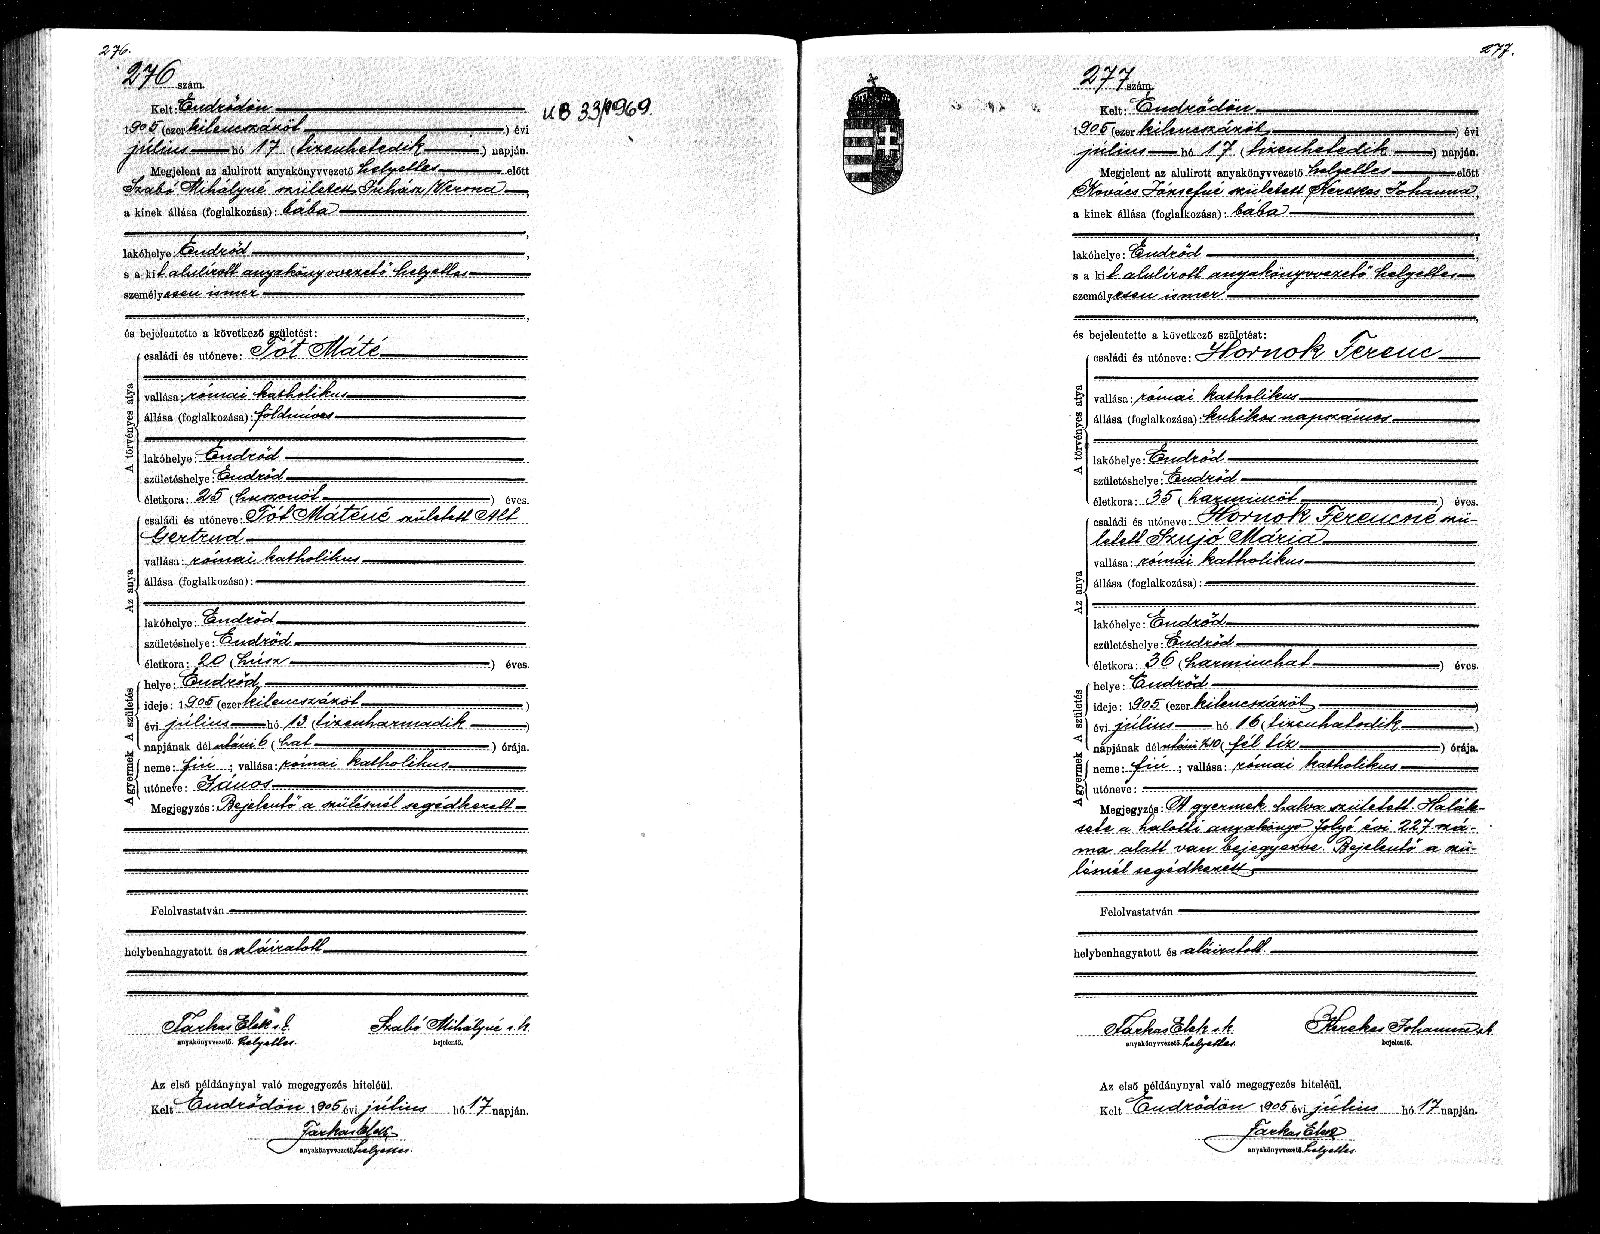 276.
276 szám.
Kelt: Endrődön
1905 (ezer kilenczszázöt ) évi
július hó 17 ( tizenhetedik ) napján.
Megjelent az alulírott anyakönyvvezető helyettes előtt
Szabó Mihályné született Juhász Verona,
a kinek állása (foglalkozása): bába
lakóhelye Endrőd,
s a kit alulírott anyakönyvvezető helyettes
személyesen ismer
és bejelentette a következő születést:
A törvényes atya
családi és utóneve: Tót Máté
vallása: római katholikus
állása (foglalkozása): földmíves
lakóhelye: Endrőd
születéshelye: Endrőd
életkora: 25 ( huszonöt ) éves.
Az anya
családi és utóneve: Tót Máténé született Alt
Gertrud
vallása: római katholikus
állása (foglalkozása):
lakóhelye: Endrőd
születéshelye: Endrőd
életkora: 20 ( húsz ) éves.
A születés
helye: Endrőd
ideje: 1905 (ezer kilenczszázöt )
évi július hó 13 ( tizenharmadik )
napjának délutáni 6 ( hat ) órája.
A gyermek
neme: fiú ; vallása: római katholikus
utóneve: János
Megjegyzés: Bejelentő a szülésnél segédkezett
Felolvastatván
helybenhagyatott és aláíratott
Farkas Elek s. k. Szabó Mihályné s. k.
anyakönyvvezető. helyettes. bejelentő.
Az első példánynyal való megegyezés hiteléül.
Kelt Endrődön 1905 évi július hó 17 napján.
Farkas Elek
anyakönyvvezető helyettes.
UB 33/1969.
277.
277 szám.
Kelt: Endrődön
1905 (ezer kilenczszázöt ) évi
július hó 17 ( tizenhetedik ) napján.
Megjelent az alulírott anyakönyvvezető helyettes előtt
Kovács Józsefné született Kerekes Johanna,
a kinek állása (foglalkozása): bába
lakóhelye: Endrőd
s a kit alulírott anyakönyvvezető helyettes
személyesen ismer
és bejelentette a következő születést:
A törvényes atya
családi és utóneve: Hornok Ferenc
vallása: római katholikus
állása (foglalkozása): kubikos napszámos
lakóhelye: Endrőd
születéshelye: Endrőd
életkora: 35 ( harminczöt ) éves.
Az anya
családi és utóneve: Hornok Ferencné szü-
letett Szujó Mária
vallása: római katholikus
állása (foglalkozása):
lakóhelye: Endrőd
születéshelye: Endrőd
életkora: 36 ( harminchat ) éves.
A születés
helye: Endrőd
ideje: 1905 (ezer kilenczszázöt )
évi július hó 16 ( tizenhatodik )
napjának délutáni ½10 ( fél tíz ) órája.
A gyermek
neme: fiú ; vallása: római katholikus
utóneve:
Megjegyzés: A gyermek halva született. Halál-
esete a halotti anyakönyv folyó évi 227 szá-
ma alatt van bejegyezve. Bejelentő a szü-
lésnél segédkezett
Felolvastatván
helybenhagyatott és aláíratott
Farkas Elek s. k. Kerekes Johanna s. k.
anyakönyvvezető. helyettes. bejelentő.
Az első példánynyal való megegyezés hiteléül.
Kelt Endrődön 1905 évi július hó 17 napján.
Farkas Elek
anyakönyvvezető helyettes.